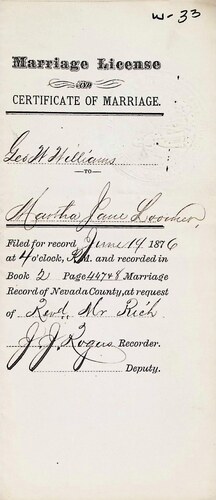 W-33
Marriage License
AND
CERTIFICATE OF MARRIAGE.
Geo W Williams
—TO—
Martha Jane Loomer,
Filed for record June 19 1876
at 4 o'clock, P.M. and recorded in
Book 2 Page 447&8 Marriage
Record of Nevada County, at request
of Revd. Mr Rich
J. J. Rogers Recorder.
Deputy.